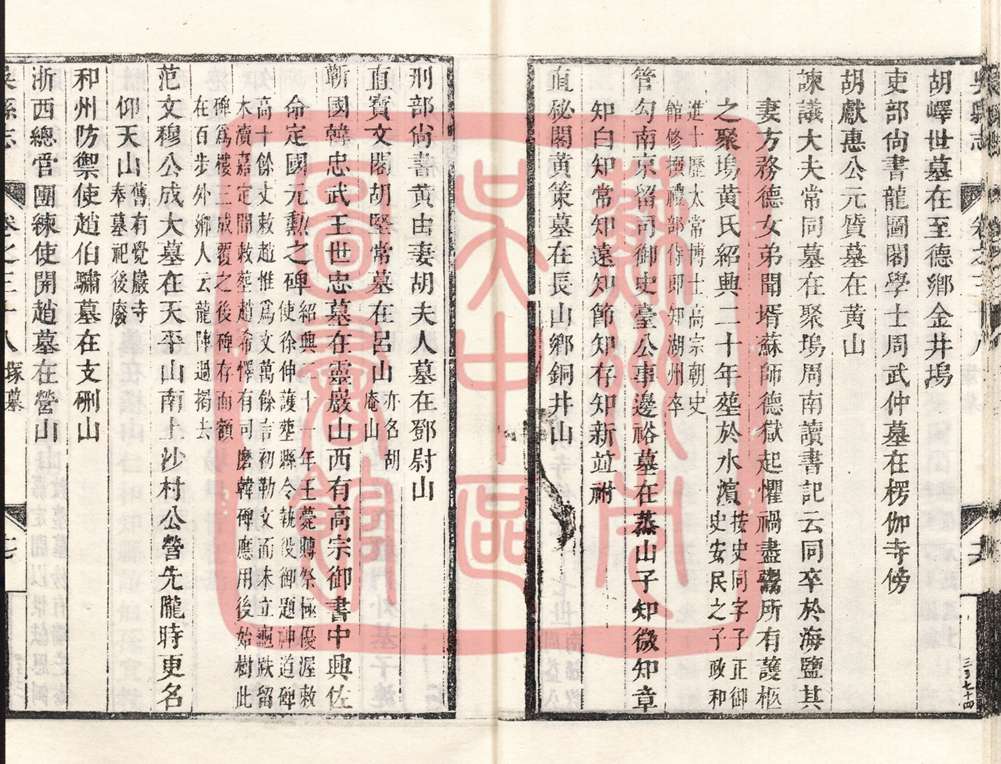 吳縣志 卷之三十八
三百七十四
胡嶧世墓在至德鄉金井塢
吏部尙書龍圖閣學士周武仲墓在楞伽寺傍
胡獻惠公元質墓在黃山
諫議大夫常同墓在聚塢周南讀書記云同卒於海鹽其
妻方務德女弟聞壻蘇師德獄起懼禍盡鬻所有護柩
之聚塢黃氏紹興二十年塟於水濆按史同字子正御
史安民之子政和
進士歷太常博士高宗朝史
館修撰禮部侍郎知湖州卒
管勾南京留司御史臺公事邊裕墓在蒸山子知微知章
知白知常知遠知節知存知新竝祔
直祕閣黃策墓在長山鄉銅井山
刑部尙書黃由妻胡夫人墓在鄧尉山
直寶文閣胡堅常墓在呂山亦名胡
庵山
蘄國韓忠武王世忠墓在靈巖山西有高宗御書中興佐
命定國元勳之碑紹興二十一年王薨賻祭極優渥敕
使徐伸護塟縣令執役御題神道碑
高十餘丈敕趙惟爲文萬餘言初勒文而未立龜趺留
木瀆嘉定間敕塟趙希懌有司磨韓碑應用後始樹此
碑爲樓三成覆之後碑存而額
在百步外鄉人云龍陣過揭去
范文穆公成大墓在天平山南上沙村公營先隴時更名
仰天山舊有覺嚴寺
奉墓祀後廢
和州防禦使趙伯驌墓在支硎山
浙西總管團練使開趙墓在營山
吳縣志 卷之三十八 塚墓